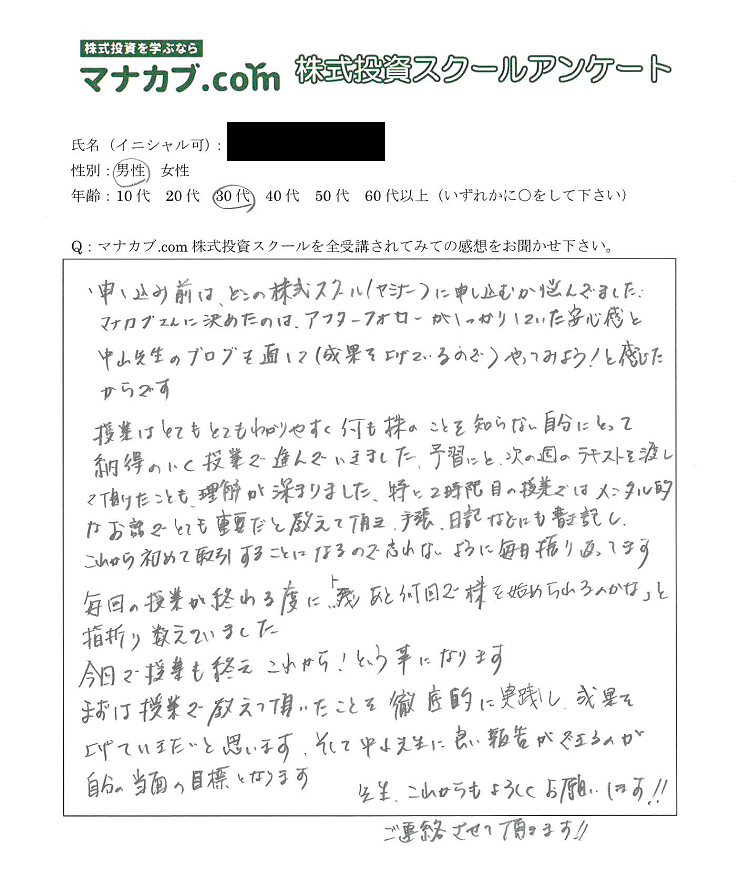 株式投資を学ぶなら
マナカブ.com 株式投資スクールアンケート
氏名（イニシャル可）：
性別：男性 女性
年齢：10代 20代 30代 40代 50代 60代以上（いずれかに○をして下さい）
Q：マナカブ.com 株式投資スクールを全受講されてみての感想をお聞かせ下さい。
申し込み前は、どこの株式スクール(セミナー)に申し込むか悩んでました。
マナカブさんに決めたのは、アフターフォローがしっかりしていた安心感と
中山先生のブログを通して(成果を上げているので)やってみよう!と感じた
からです
授業はとてもとてもわかりやすく何も株のことを知らない自分にとって
納得のいく授業で進んでいきました、予習にと、次の週のテキストを渡し
て頂けたことも、理解が深まりました、特に2時限目の授業ではメンタル的
なお話でとても重要だと教えて頂き、手帳、日記などにも書き記し、
これから初めて取引することになるので忘れないように毎日振り返ってます
毎回の授業が終わる度に「あと何回で株を始められるのかな」と
指折り数えていました
今回で授業も終え これから!という事になります
まずは授業で教えて頂いたことを徹底的に実践し、成果を
上げていきたいと思います、そして中山先生に良い報告ができるのが
自分の当面の目標となります
先生、これからもよろしくお願いします!!
ご連絡させて頂きます!!